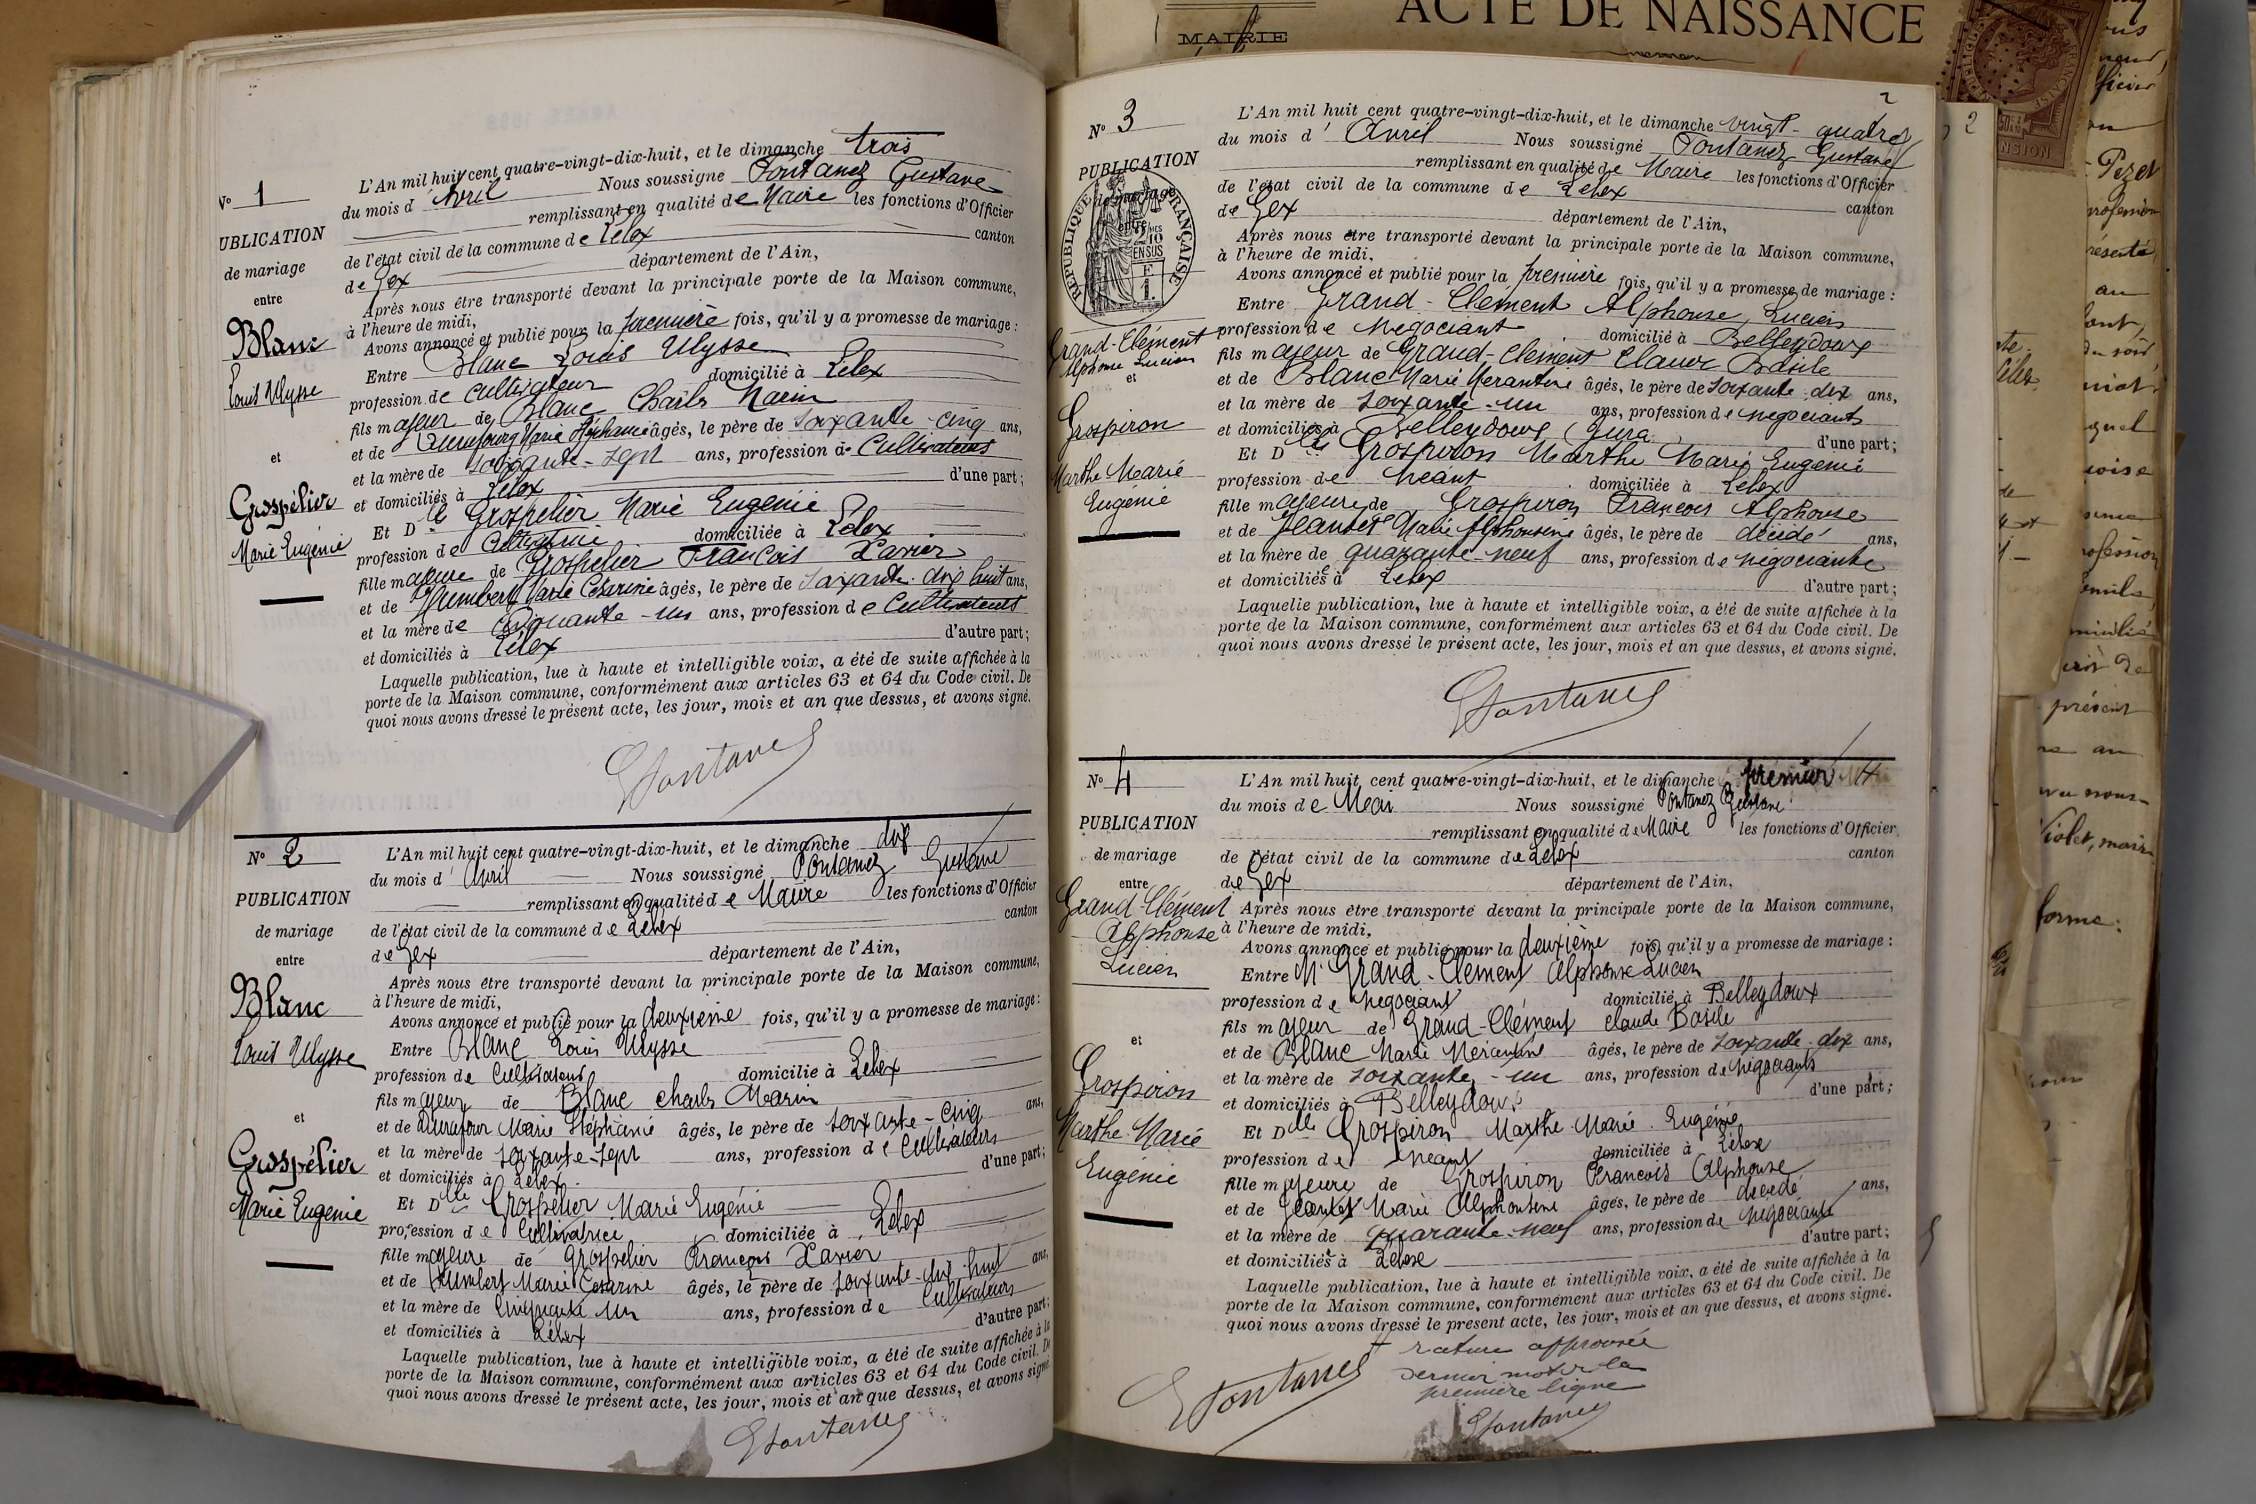 N° 1
UBLICATION
de mariage
entre
Blanc
Louis Ulysse
et
Grospélier
Marie Eugénie
L'An mil huit cent quatre-vingt-dix-huit, et le dimanche trois
du mois d Avril Nous soussigné Fontanez Gustave
remplissant en qualité de Maire les fonctions d'Officier
de l'état civil de la commune de Lélex canton
de Gex département de l'Ain,
Après nous être transporté devant la principale porte de la Maison commune,
à l'heure de midi,
Avons annoncé et publié pour la première fois, qu'il y a promesse de mariage :
Entre Blanc Louis Ulysse
profession de cultivateur domicilié à Lelex
fils majeur de Blanc Charles Marin
et de Marie Stéphanie âgés, le père de soixante-cinq ans,
et la mère de soixante-sept ans, profession de Cultivateurs
et domiciliés à Lélex d'une part;
Et Dlle Grospélier Marie Eugénie
profession de Cultivatrice domiciliée à Lelex
fille majeure de Grospelier François Xavier
et de Humbert Marie Césarine âgés, le père de soixante-dix huit ans,
et la mère de cinquante-un ans, profession de Cultivateurs
et domiciliés à Lélex d'autre part;
Laquelle publication, lue à haute et intelligible voix, a été de suite affichée à la
porte de la Maison commune, conformément aux articles 63 et 64 du Code civil. De
quoi nous avons dressé le présent acte, les jour, mois et an que dessus, et avons signé.
GFontanez
N° 2
PUBLICATION
de mariage
entre
Blanc
Louis Ulysse
et
Grospélier
Marie Eugénie
L'An mil huit cent quatre-vingt-dix-huit, et le dimanche dix
du mois d' Avril Nous soussigné Fontanez Gustave
remplissant en qualité de Maire les fonctions d'Officier
de l'état civil de la commune de Lelex canton
de Gex département de l'Ain,
Après nous être transporté devant la principale porte de la Maison commune,
à l'heure de midi,
Avons annoncé et publié pour la deuxième fois, qu'il y a promesse de mariage :
Entre Blanc Louis Ulysse
profession de Cultivateur domicilié à Lelex
fils majeur de Blanc Charles Marin
et de Marie Stéphanie âgés, le père de soixante-cinq ans,
et la mère de soixante-sept ans, profession de Cultivateurs
et domiciliés à Lelex d'une part;
Et Dlle Grospélier Marie Eugénie
profession de Cultivatrice domiciliée à Lelex
fille majeure de Grospelier François Xavier
et de Humbert Marie Césarine âgés, le père de soixante-dix-huit ans,
et la mère de cinquante un ans, profession de Cultivateurs
et domiciliés à Lélex d'autre part;
Laquelle publication, lue à haute et intelligible voix, a été de suite affichée à la
porte de la Maison commune, conformément aux articles 63 et 64 du Code civil. De
quoi nous avons dressé le présent acte, les jour, mois et an que dessus, et avons signé
GFontanez
MAIRIE
ACTE DE NAISSANCE
2
2
N° 3
PUBLICATION
de mariage
entre
RÉPUBLIQUE FRANÇAISE
2/10 EN SUS
F 1.
Grand-Clément
Alphonse Lucien
et
Grospiron
Marthe Marie
Eugénie
L'An mil huit cent quatre-vingt-dix-huit, et le dimanche vingt-quatre
du mois d' Avril Nous soussigné Fontanez Gustave
remplissant en qualité de Maire les fonctions d'Officier
de l'état civil de la commune de Lelex canton
de Gex département de l'Ain,
Après nous être transporté devant la principale porte de la Maison commune,
à l'heure de midi,
Avons annoncé et publié pour la première fois, qu'il y a promesse de mariage :
Entre Grand-Clément Alphonse Lucien
profession de négociant domicilié à Belleydoux
fils majeur de Grand-Clément Claude Basile
et de Blanc Marie âgés, le père de soixante-dix ans,
et la mère de soixante-un ans, profession de négociants
et domiciliés à Belleydoux Jura d'une part;
Et Dlle Grospiron Marthe Marie Eugénie
profession de néant domiciliée à Lelex
fille majeure de Grospiron François Alphonse
et de Jeantet Marie Alphonsine âgés, le père de décédé ans,
et la mère de quarante-neuf ans, profession de négociante
et domiciliés à Lelex d'autre part;
Laquelle publication, lue à haute et intelligible voix, a été de suite affichée à la
porte de la Maison commune, conformément aux articles 63 et 64 du Code civil. De
quoi nous avons dressé le présent acte, les jour, mois et an que dessus, et avons signé.
GFontanez
N° 4
PUBLICATION
de mariage
entre
Grand Clément
Alphonse
Lucien
et
Grospiron
Marthe Marie
Eugénie
L'An mil huit cent quatre-vingt-dix-huit, et le dimanche premier
du mois de Mai Nous soussigné Fontanez Gustave
remplissant en qualité de Maire les fonctions d'Officier
de l'état civil de la commune de Lelex canton
de Gex département de l'Ain,
Après nous être transporté devant la principale porte de la Maison commune,
à l'heure de midi,
Avons annoncé et publié pour la deuxième fois, qu'il y a promesse de mariage :
Entre Mr Grand-Clément Alphonse Lucien
profession de négociant domicilié à Belleydoux
fils majeur de Grand-Clément Claude Basile
et de Blanc Marie âgés, le père de soixante-dix ans,
et la mère de soixante-un ans, profession de négociants
et domiciliés à Belleydoux d'une part;
Et Dlle Grospiron Marthe Marie Eugénie
profession de néant domiciliée à Lélex
fille majeure de Grospiron François Alphonse
et de Jeantet Marie Alphonsine âgés, le père de décédé ans,
et la mère de quarante-neuf ans, profession de négociante
et domiciliés à Lélex d'autre part;
Laquelle publication, lue à haute et intelligible voix, a été de suite affichée à la
porte de la Maison commune, conformément aux articles 63 et 64 du Code civil. De
quoi nous avons dressé le présent acte, les jour, mois et an que dessus, et avons signé.
rature approuvée
dernier mot de la
première ligne
GFontanez
GFontanez